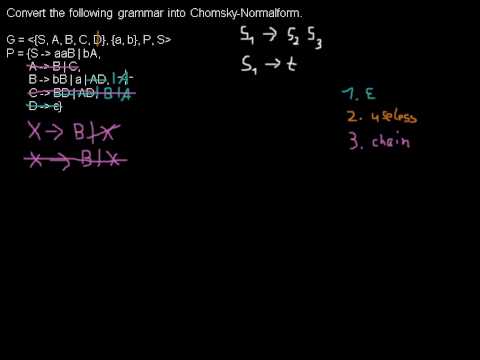 Convert the following grammar into Chomsky-Normalform.
G = <{S, A, B, C, D}, {a, b}, P, S>
P = {S -> aaB | bA,
A -> B | C,
B -> bB | a | AD, | A
C -> BD | AD | B | A
D -> ε}
X → B | X
X → B | X
S1 → S2 S3
S1 → t
1. ε
2. useless
3. chain